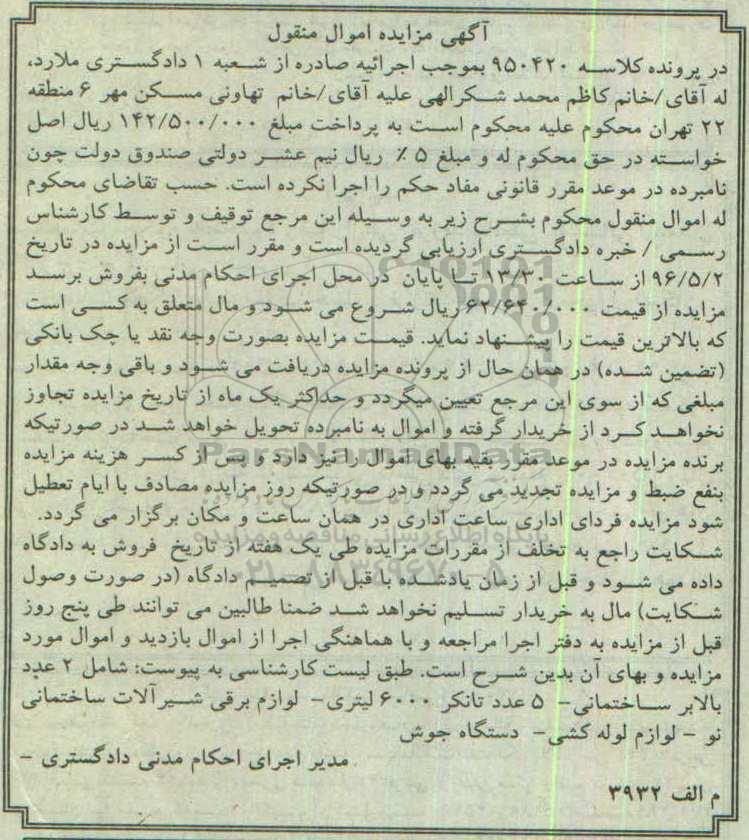 آگهی مزایده اموال منقول
در پرونده کلاسه ۹۵۰۴۲۰ بموجب اجرائیه صادره از شعبه ۱ دادگستری ملارد،
له آقای/خانم کاظم محمد شکرالهی علیه آقای/خانم تهاونی مسکن مهر ۶ منطقه
۲۲ تهران محکوم علیه محکوم است به پرداخت مبلغ ۱۴۲/۵۰۰/۰۰۰ ریال اصل
خواسته در حق محکوم له و مبلغ ۵ ٪ ریال نیم عشر دولتی صندوق دولت چون
نامبرده در موعد مقرر قانونی مفاد حکم را اجرا نکرده است. حسب تقاضای محکوم
له اموال منقول محکوم بشرح زیر به وسیله این مرجع توقیف و توسط کارشناس
رسمی / خبره دادگستری ارزیابی گردیده است و مقرر است از مزایده در تاریخ
۹۶/۵/۲ از ساعت ۱۳/۳۰ تا پایان در محل اجرای احکام مدنی بفروش برسد
مزایده از قیمت ۶۲/۶۴۰/۰۰۰ ریال شروع می شود و مال متعلق به کسی است
که بالاترین قیمت را پیشنهاد نماید. قیمت مزایده بصورت وجه نقد یا چک بانکی
(تضمین شده) در همان حال از پرونده مزایده دریافت می شود و باقی وجه مقدار
مبلغی که از سوی این مرجع تعیین میگردد و حداکثر یک ماه از تاریخ مزایده تجاوز
نخواهد کرد از خریدار گرفته و اموال به نامبرده تحویل خواهد شد در صورتیکه
برنده مزایده در موعد مقرر بقیه بهای اموال را نیز دارد و پس از کسر هزینه مزایده
بنفع ضبط و مزایده تجدید می گردد و در صورتیکه روز مزایده مصادف با ایام تعطیل
شود مزایده فردای اداری ساعت اداری در همان ساعت و مکان برگزار می گردد.
شکایت راجع به تخلف از مقررات مزایده طی یک هفته از تاریخ فروش به دادگاه
داده می شود و قبل از زمان یادشده با قبل از تصمیم دادگاه (در صورت وصول
شکایت) مال به خریدار تسلیم نخواهد شد ضمنا طالبین می توانند طی پنج روز
قبل از مزایده به دفتر اجرا مراجعه و با هماهنگی اجرا از اموال بازدید و اموال مورد
مزایده و بهای آن بدین شرح است. طبق لیست کارشناسی به پیوست: شامل ۲ عدد
بالابر ساختمانی- ۵ عدد تانکر ۶۰۰۰ لیتری- لوازم برقی شیرآلات ساختمانی
نو - لوازم لوله کشی- دستگاه جوش
مدیر اجرای احکام مدنی دادگستری -
م الف ۳۹۳۲
ParsNamadData
پایگاه اطلاع رسانی مناقصه و مزایده
۰۲۱-۸۸۳۴۹۶۷۰-۵